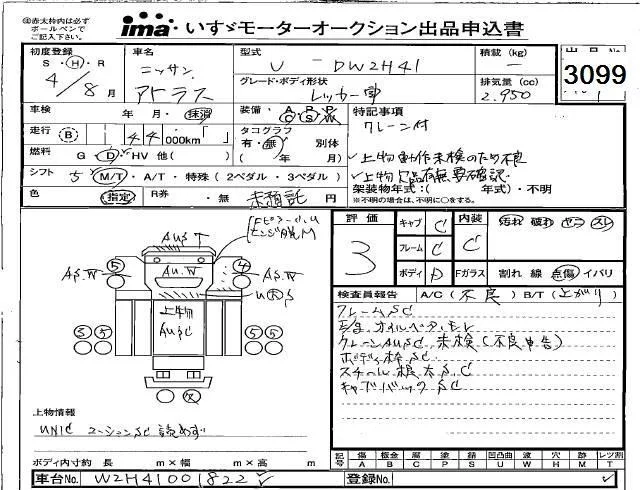 ㊟赤太枠内は必ず
ボールペンで
ご記入下さい。
ima いすゞモーターオークション出品申込書
初度登録 車名 型式 積載 (kg) 出品No
S・H・R ニッサン U - DW2H41 —
4/8月 アトラス グレード・ボディ形状 排気量 (cc) 3099
レッカー車 2.950
車検 年・月・抹消 装備・A P P C S W 特記事項
走行 B 44 000km タコグラフ 有・無 別体 クレーン付
燃料 G D HV 他( ) ( 年/ 月) 上物動作未検のため不良
シフト 5 M/T・A/T・特殊 (2ペダル・3ペダル) 上物欠品有無要確認
架装物年式:( 年式)・不明
色 指定 R券 ・無 未預託 円 ※不明の場合は、不明に○をする。
評価 3
キャブ C 内装 C 汚れ 破れ ヤニ スレ
フレーム C
ボディ D Fガラス 割れ 線 点傷 イバリ
検査員報告 A/C (不良) B/T (上がり)
フレームSC
E/g オイルペア, モレ
クレーンAUSC 未検(不良申告)
ボディ枠SC
スチール根太SC
キャブバックSC
AUST
5 4
AS.W AU.W AS.W
上物
AUSC
5 5 5 5
上物情報
UNIC コーションSC 読めず
ボディ内寸約 長 m×幅 m×高 m
記号 傷 板金 腐 塗 錆 凹凸曲 波 穴 跡 レツ割
A B C P S U W H M T
車台No. W2H41001822 登録No.